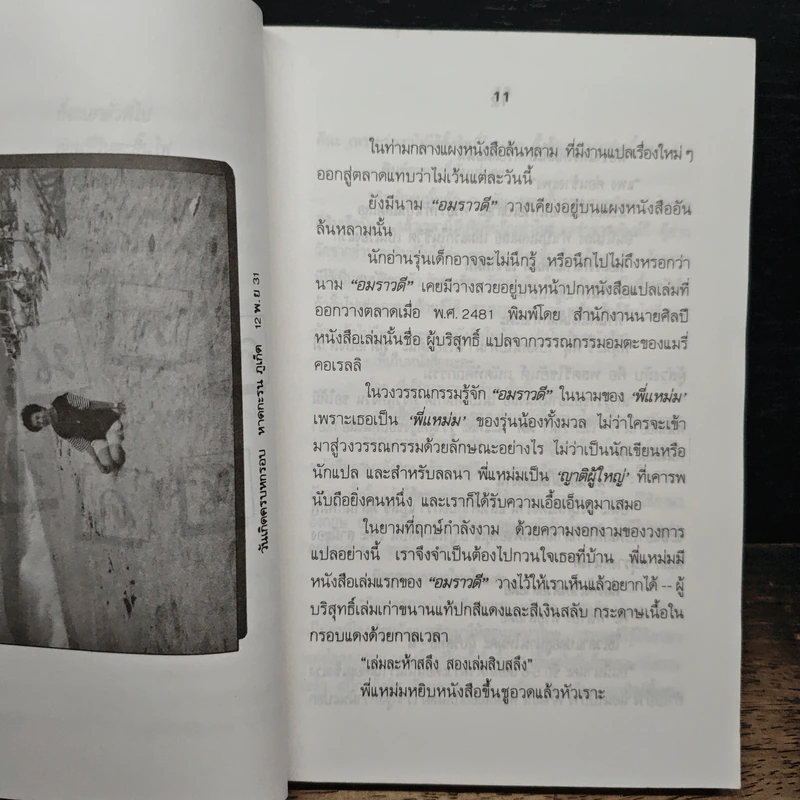 วันเกิดครบหกรอบ หาดกะรน ภูเก็ต 12 พ.ย 31
11
ในท่ามกลางแผงหนังสือล้นหลาม ที่มีงานแปลเรื่องใหม่ ๆ
ออกสู่ตลาดแทบว่าไม่เว้นแต่ละวันนี้
ยังมีนาม “อมราวดี” วางเคียงอยู่บนแผงหนังสืออัน
ล้นหลามนั้น
นักอ่านรุ่นเด็กอาจจะไม่นึกรู้ หรือนึกไปไม่ถึงหรอกว่า
นาม “อมราวดี” เคยมีวางสวยอยู่บนหน้าปกหนังสือแปลเล่มที่
ออกวางตลาดเมื่อ พ.ศ. 2481 พิมพ์โดย สำนักงานนายศิลปี
หนังสือเล่มนั้นชื่อ ผู้บริสุทธิ์ แปลจากวรรณกรรมอมตะของแมรี่
คอเรลลิ
ในวงวรรณกรรมรู้จัก “อมราวดี” ในนามของ ‘พี่แหม่ม’
เพราะเธอเป็น ‘พี่แหม่ม’ ของรุ่นน้องทั้งมวล ไม่ว่าใครจะเข้า
มาสู่วงวรรณกรรมด้วยลักษณะอย่างไร ไม่ว่าเป็นนักเขียนหรือ
นักแปล และสำหรับลลนา พี่แหม่มเป็น ‘ญาติผู้ใหญ่’ ที่เคารพ
นับถือยิ่งคนหนึ่ง และเราก็ได้รับความเอื้อเอ็นดูมาเสมอ
ในยามที่ฤกษ์กำลังงาม ด้วยความงอกงามของวงการ
แปลอย่างนี้ เราจึงจำเป็นต้องไปกวนใจเธอที่บ้าน พี่แหม่มมี
หนังสือเล่มแรกของ “อมราวดี” วางไว้ให้เราเห็นแล้วอยากได้ -- ผู้
บริสุทธิ์เล่มเก่าขนานแท้ปกสีแดงและสีเงินสลับ กระดาษเนื้อใน
กรอบแดงด้วยกาลเวลา
“เล่มละห้าสลึง สองเล่มสิบสลึง”
พี่แหม่มหยิบหนังสือขึ้นชูอวดแล้วหัวเราะ